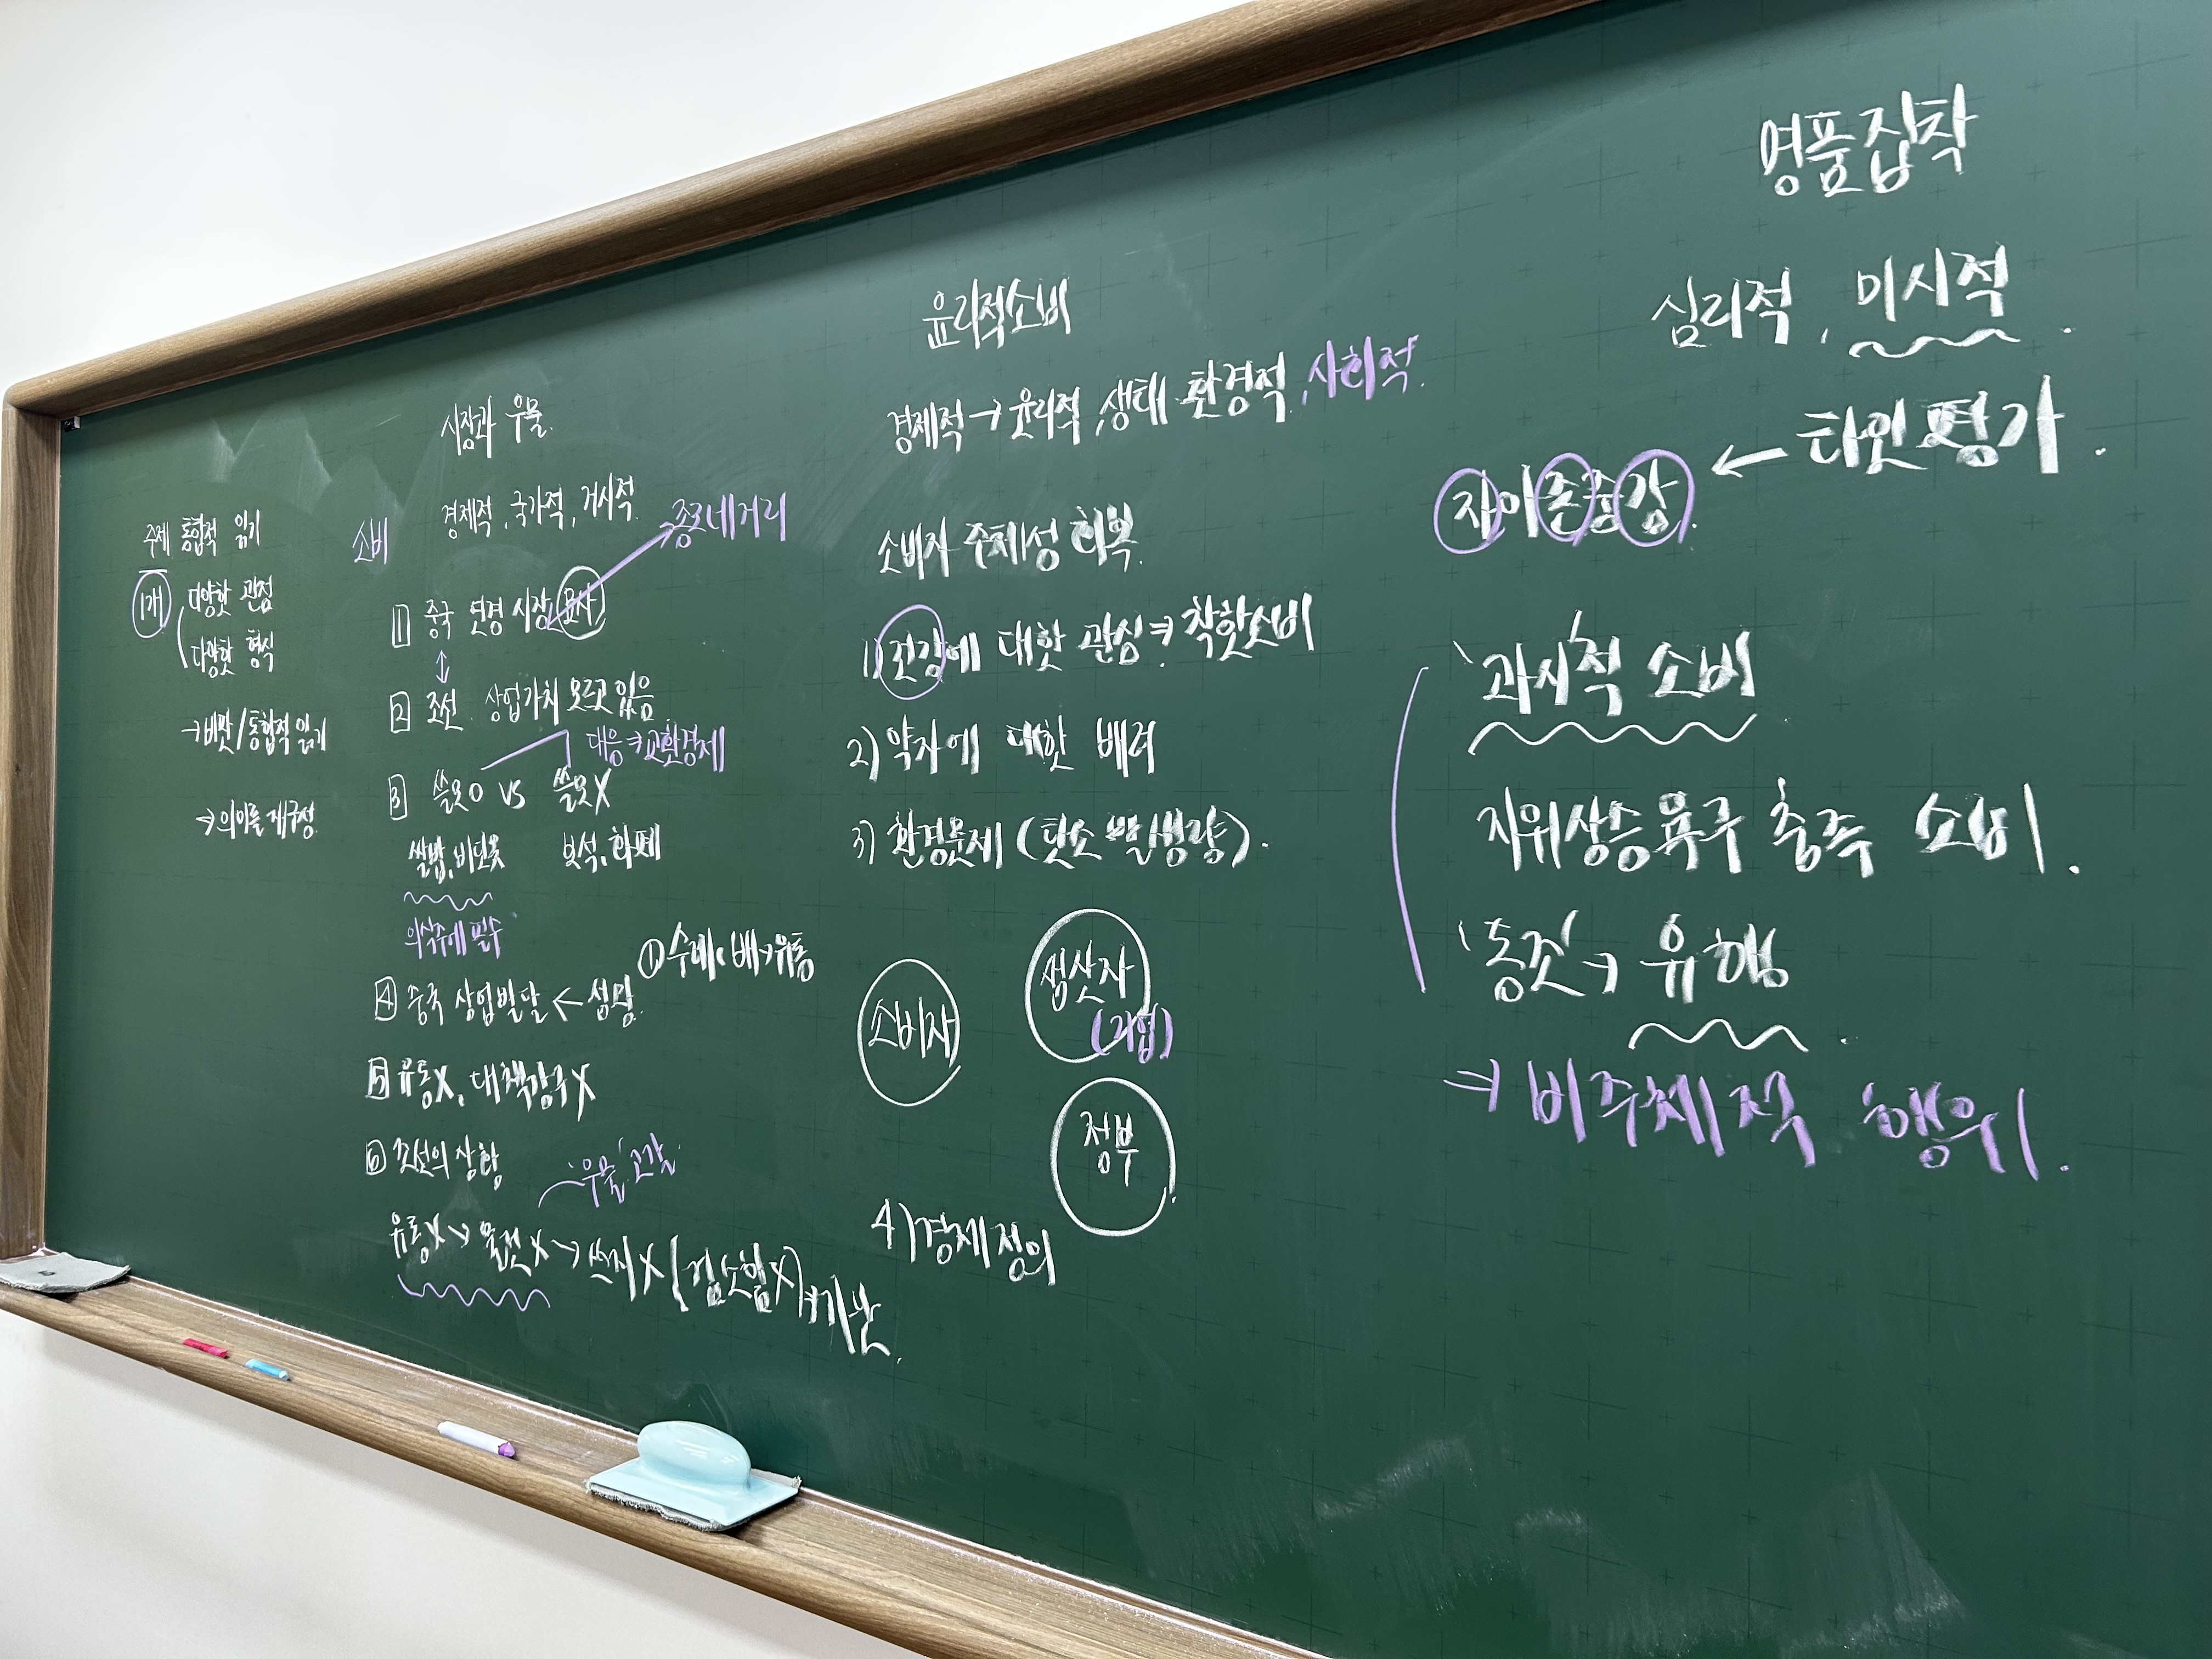 주제 통합적 읽기
1개 다양한 관점
다양한 형식
→ 비판/통합적 읽기
→ 의미를 재구성
소비
시장과 우물
경제적, 국가적, 거시적
종로네거리
1 중국 연경 시장 묘사
↕
2 조선 상업가치 모르고 있음
대응 ⇒ 교환경제
3 쓸모O VS 쓸모X
쌀밥, 비단옷 보석, 화폐
의식주에 필수
① 수레, 배 → 유통
4 중국 상업발달 ← 설명
5 유통X, 대책강구X
6 조선의 상황
'우물' 고갈
유통X → 물건X → 쓰지X (검소함X) ⇒ 가난.
윤리적소비
경제적 → 윤리적, 생태 환경적, 사회적.
소비자 주체성 회복.
1) 건강에 대한 관심 ⇒ 착한소비
2) 약자에 대한 배려
3) 환경문제 (탄소 발생량).
소비자
생산자
(기업)
정부
4) 경제정의
명품집착
심리적, 미시적.
자아존중감. ← 타인 평가.
'과시적' 소비
지위상승욕구 충족 소비.
'동조' → 유행.
⇒ 비주체적 행위.